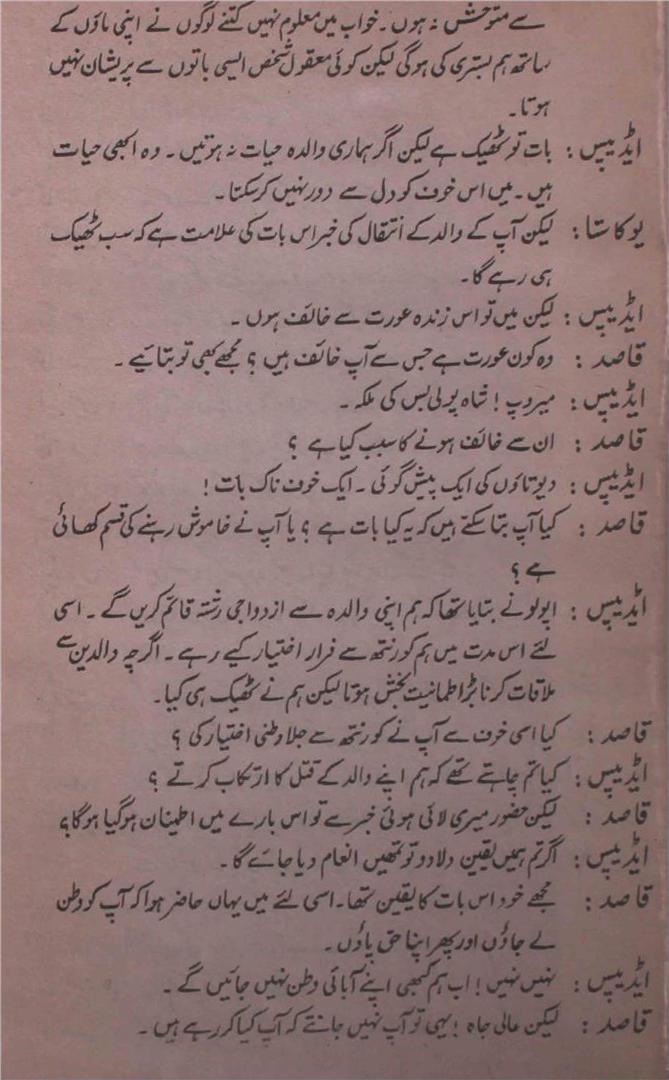 سے متوحش نہ ہوں۔ خواب میں معلوم نہیں کتنے لوگوں نے اپنی ماؤں کے
ساتھ ہم بستری کی ہوگی لیکن کوئی معقول شخص ایسی باتوں سے پریشان نہیں
ہوتا۔
ایڈیپس : بات تو ٹھیک ہے لیکن اگر ہماری والدہ حیات نہ ہوتیں۔ وہ ابھی حیات
ہیں۔ میں اس خوف کو دل سے دور نہیں کر سکتا۔
یوکاستا : لیکن آپ کے والد کے انتقال کی خبر اس بات کی علامت ہے کہ سب ٹھیک
ہی رہے گا۔
ایڈیپس : لیکن میں تو اس زندہ عورت سے خائف ہوں۔
قاصد : وہ کون عورت ہے جس سے آپ خائف ہیں ؟ مجھے بھی تو بتائیے۔
ایڈیپس : میروپ ! شاہ پولی بس کی ملکہ۔
قاصد : ان سے خائف ہونے کا سبب کیا ہے ؟
ایڈیپس : دیوتاؤں کی ایک پیش گوئی۔ ایک خوف ناک بات !
قاصد : کیا آپ بتا سکتے ہیں کہ یہ کیا بات ہے ؟ یا آپ نے خاموش رہنے کی قسم کھائی
ہے ؟
ایڈیپس : اپولو نے بتایا تھا کہ ہم اپنی والدہ سے ازدواجی رشتہ قائم کریں گے۔ اسی
لئے اس مدت میں ہم کورنتھ سے فرار اختیار کیے رہے۔ اگرچہ والدین سے
ملاقات کرنا بڑا طمانیت بخش ہوتا لیکن ہم نے ٹھیک ہی کیا۔
قاصد : کیا اسی خوف سے آپ نے کورنتھ سے جلا وطنی اختیار کی ؟
ایڈیپس : کیا تم چاہتے تھے کہ ہم اپنے والد کے قتل کا ارتکاب کرتے ؟
قاصد : لیکن حضور میری لائی ہوئی خبر سے تو اس بارے میں اطمینان ہو گیا ہوگا؟
ایڈیپس : اگر تم ہمیں یقین دلا دو تو تمھیں انعام دیا جائے گا۔
قاصد : مجھے خود اس بات کا یقین تھا۔ اسی لئے میں یہاں حاضر ہوا کہ آپ کو وطن
لے جاؤں اور پھر اپنا حق پاؤں۔
ایڈیپس : نہیں نہیں ! اب ہم کبھی اپنے آبائی وطن نہیں جائیں گے۔
قاصد : لیکن عالی جاہ ! یہی تو آپ نہیں جانتے کہ آپ کیا کر رہے ہیں۔